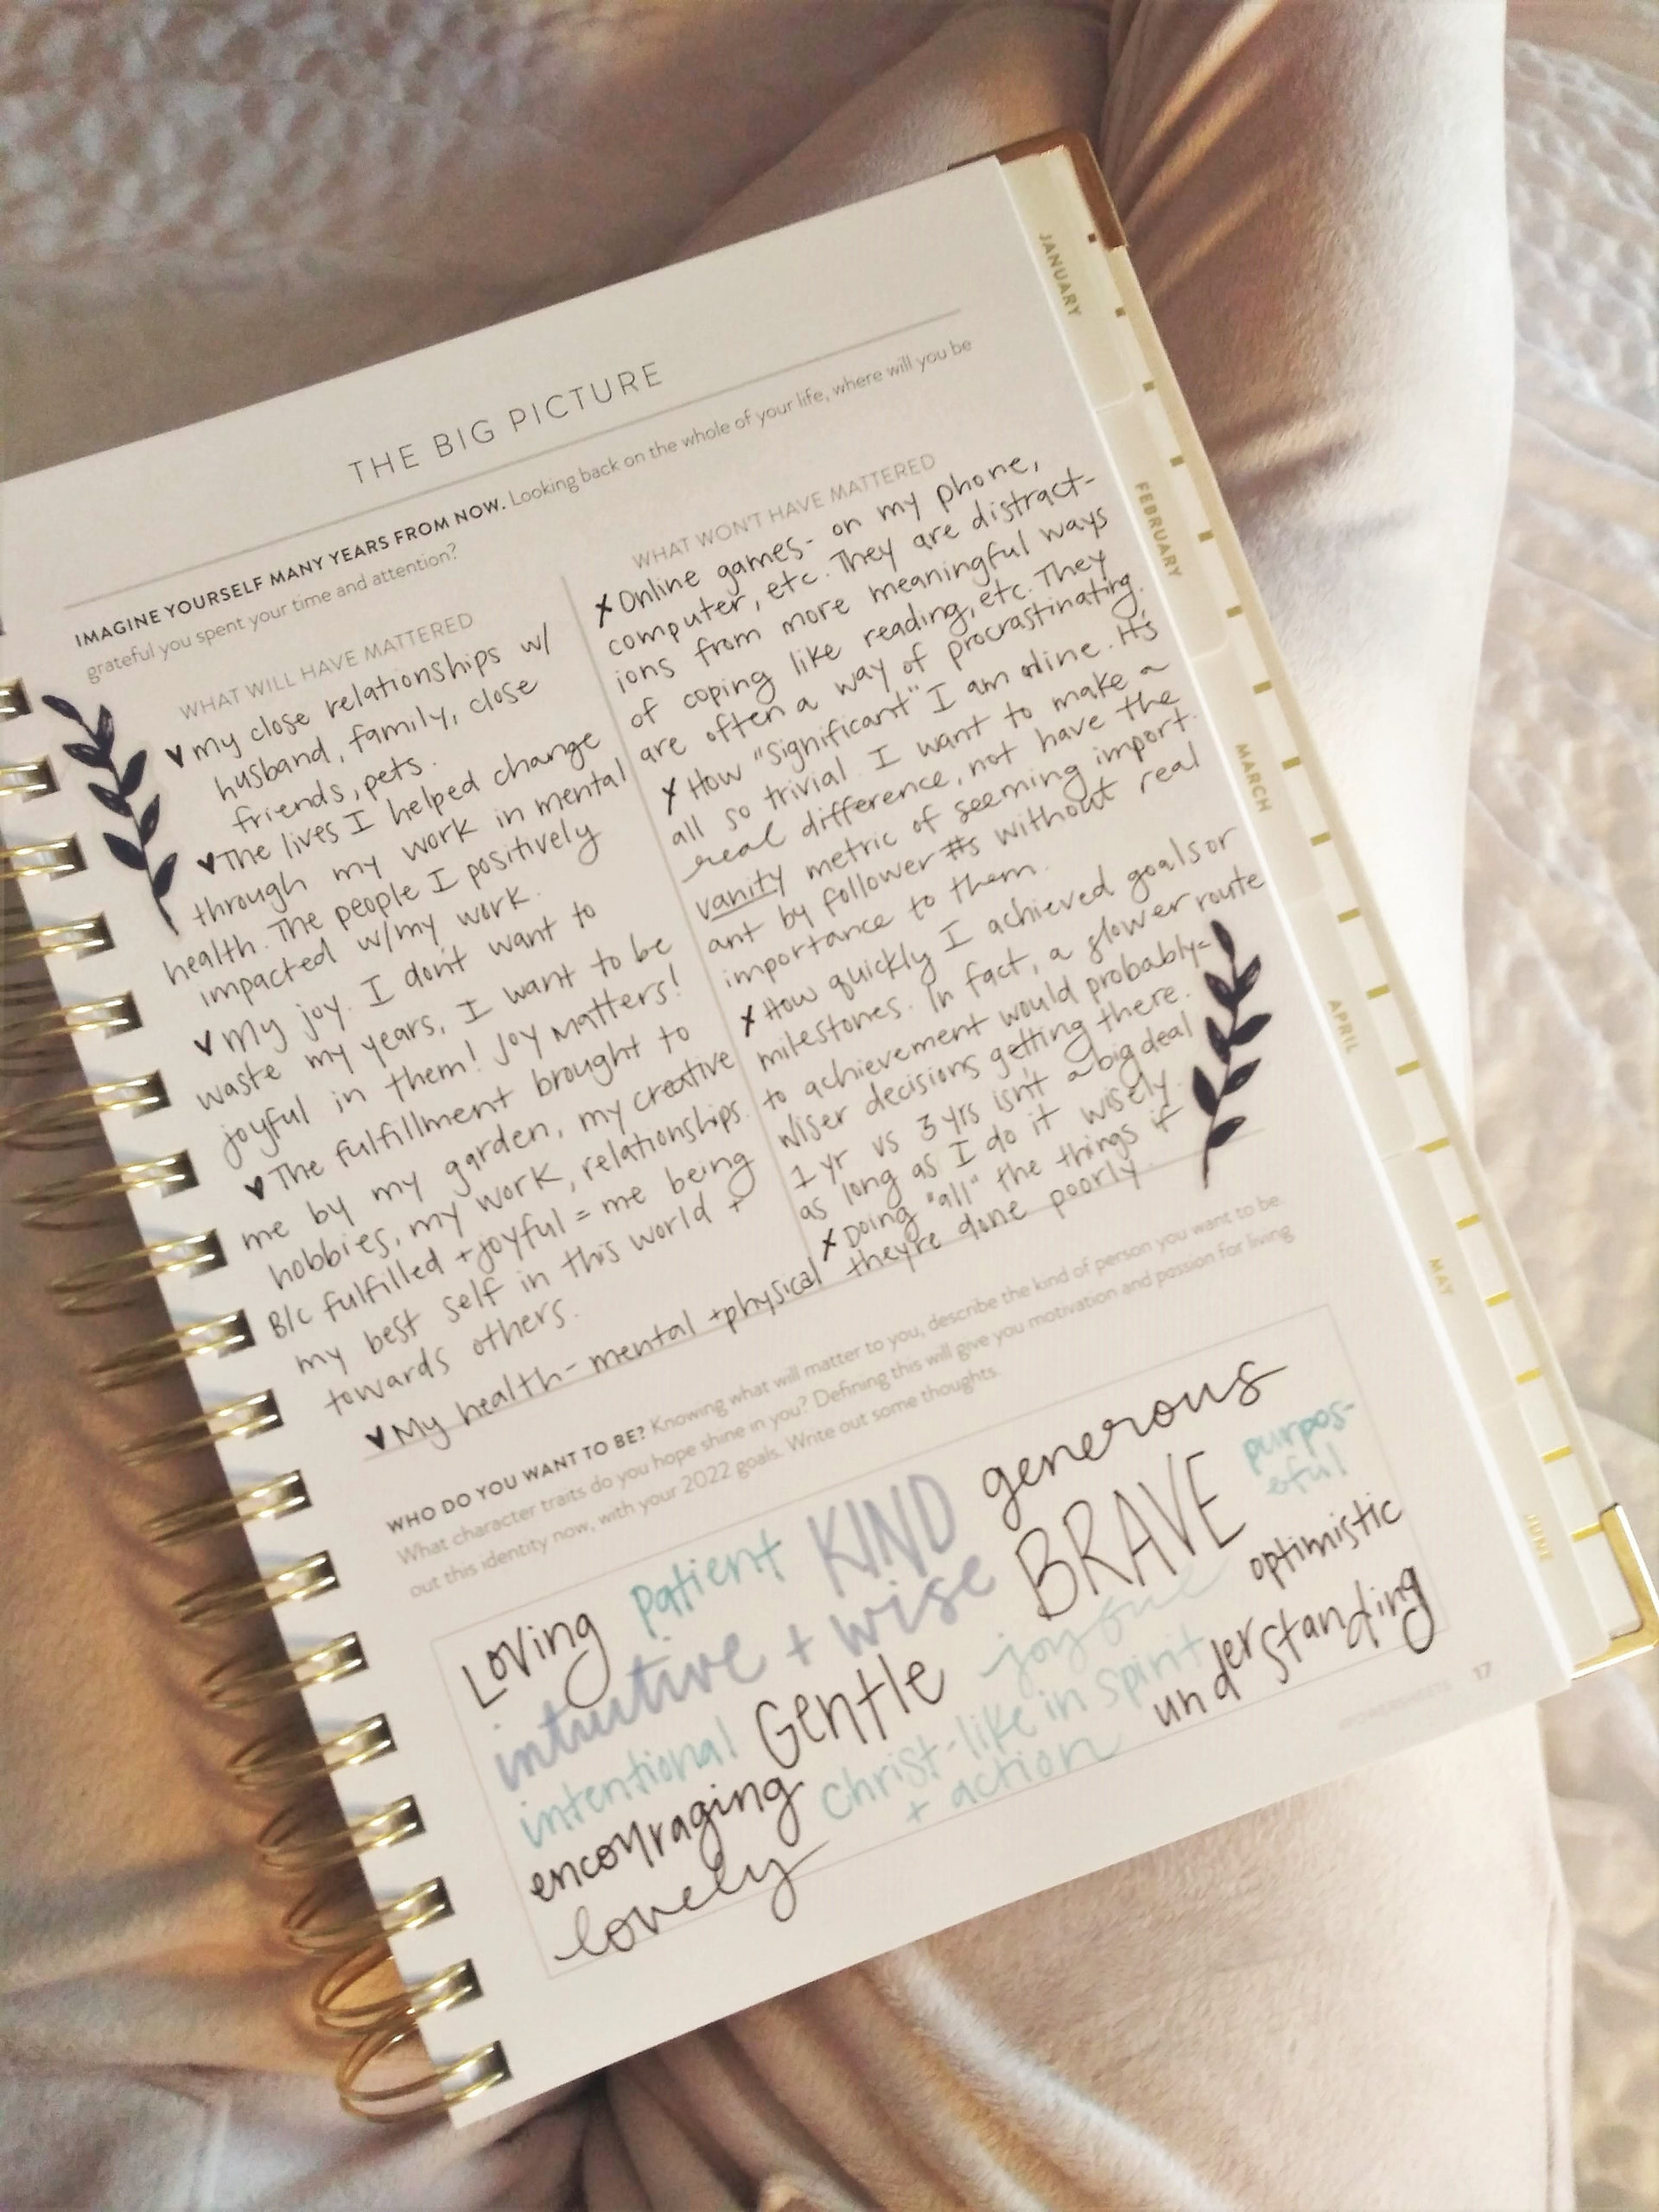 THE BIG PICTURE
IMAGINE YOURSELF MANY YEARS FROM NOW. Looking back on the whole of your life, where will you be
grateful you spent your time and attention?
WHAT WILL HAVE MATTERED
♥ my close relationships w/
husband, family, close
friends, pets.
♥ The lives I helped change
through my work in mental
health. The people I positively
impacted w/my work.
♥ My joy. I don't want to
waste my years, I want to be
joyful in them! Joy Matters!
♥ The fulfillment brought to
me by my garden, my creative
hobbies, my work, relationships.
B/c fulfilled + joyful = me being
my best self in this world +
towards others.
♥ My health- mental + physical
WHAT WON'T HAVE MATTERED
x Online games- on my phone,
computer, etc. They are distract-
ions from more meaningful ways
of coping like reading, etc. They
are often a way of procrastinating.
x How "significant" I am online. It's
all so trivial. I want to make a
real difference, not have the
vanity metric of seeming import-
ant by follower #s without real
importance to them.
x How quickly I achieved goals or
milestones. In fact, a slower route
to achievement would probably =
wiser decisions getting there.
1 yr vs 3 yrs isn't a big deal
as long as I do it wisely.
x Doing "all" the things if
they're done poorly.
WHO DO YOU WANT TO BE? Knowing what will matter to you, describe the kind of person you want to be.
What character traits do you hope shine in you? Defining this will give you motivation and passion for living
out this identity now, with your 2022 goals. Write out some thoughts.
Loving patient KIND generous
intuitive + wise BRAVE purpos-
eful
intentional Gentle joyful optimistic
encouraging Christ-like in spirit understanding
+ action
lovely
17
JANUARY
FEBRUARY
MARCH
APRIL
MAY
JUNE